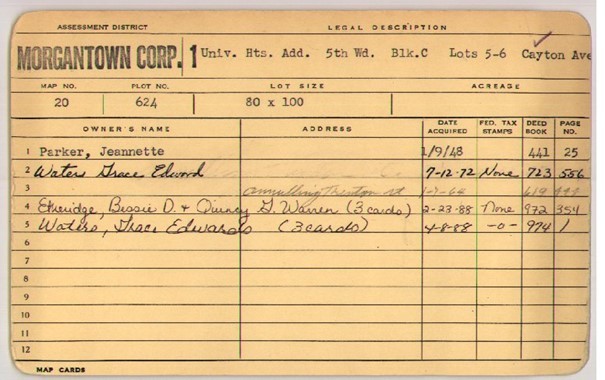 ASSESSMENT DISTRICT LEGAL DESCRIPTION
MORGANTOWN CORP. 1 Univ. Hts. Add. 5th Wd. Blk.C Lots 5-6 Cayton Ave
MAP NO. PLOT NO. LOT SIZE ACREAGE
20 624 80 x 100
OWNER'S NAME ADDRESS DATE ACQUIRED FED. TAX STAMPS DEED BOOK PAGE NO.
1 Parker, Jeannette 1/9/48 441 25
2 Waters Grace Edword 7-12-72 None 723 556
3 annulling 64 619
4 Etheridge, Bessie D. + Quincy G. Warren (3 cards) 2-23-88 None 972 354
5 Waters, Grace Edwards (3 cards) 4-8-88 -0- 974 1
6
7
8
9
10
11
12
MAP CARDS